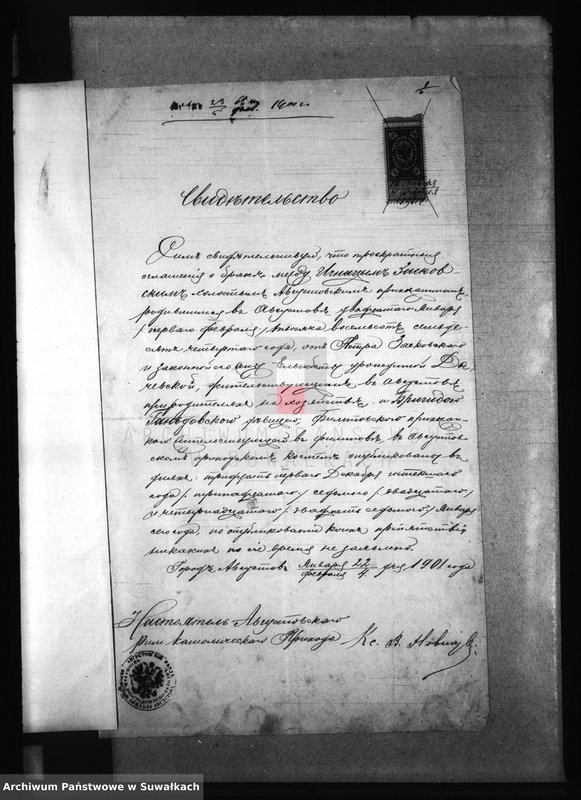 Свидѣтельство
Симъ свидѣтельствую, что троекратныя
оглашенія о бракѣ между Игнатіемъ Засков-
скимъ холостымъ Августовскимъ прихожаниномъ,
родившимся въ Августовѣ двадцатаго Января
/перваго Февраля/ тысяча восемьсотъ семьде-
сятъ четвертаго года, отъ Петра Засковскаго
и законной его жены Елисаветы урожденной
жительствующимъ въ Августовѣ
при родителяхъ на хозяйствѣ и Бригидою
дѣвицею, Филиповскаго прихода
жительствующей въ Филиповѣ, въ Августов-
скомъ приходскомъ костелѣ опубликованы въ
дняхъ: тридцать перваго Декабря истекшаго
года /тринадцатаго/ седьмого /двадцатаго/
и четырнадцатаго /двадцать седьмого/ Января
сего года, по опубликованіи коихъ препятствій
никакихъ по сіе время не заявлено.
Городъ Августовъ Января 22 / Февраля 4 дня 1901 года
Настоятель Августовскаго
Рим. Католическаго Прихода Кс. В.
Archiwum Państwowe w Suwałkach